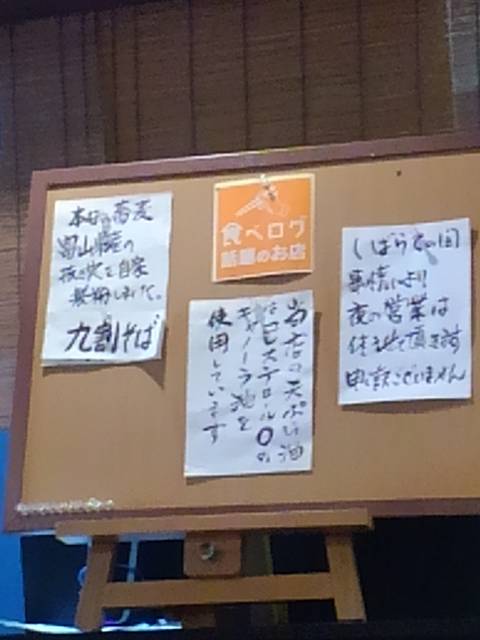 本日の蕎麦
の
自家
九割そば
食べログ
話題のお店
当店の天ぷら油
はコレステロール0の
キャノーラ油を
使用しています
しばらくの間
事情により
夜の営業は
休ませて頂きます
申し訳ございません